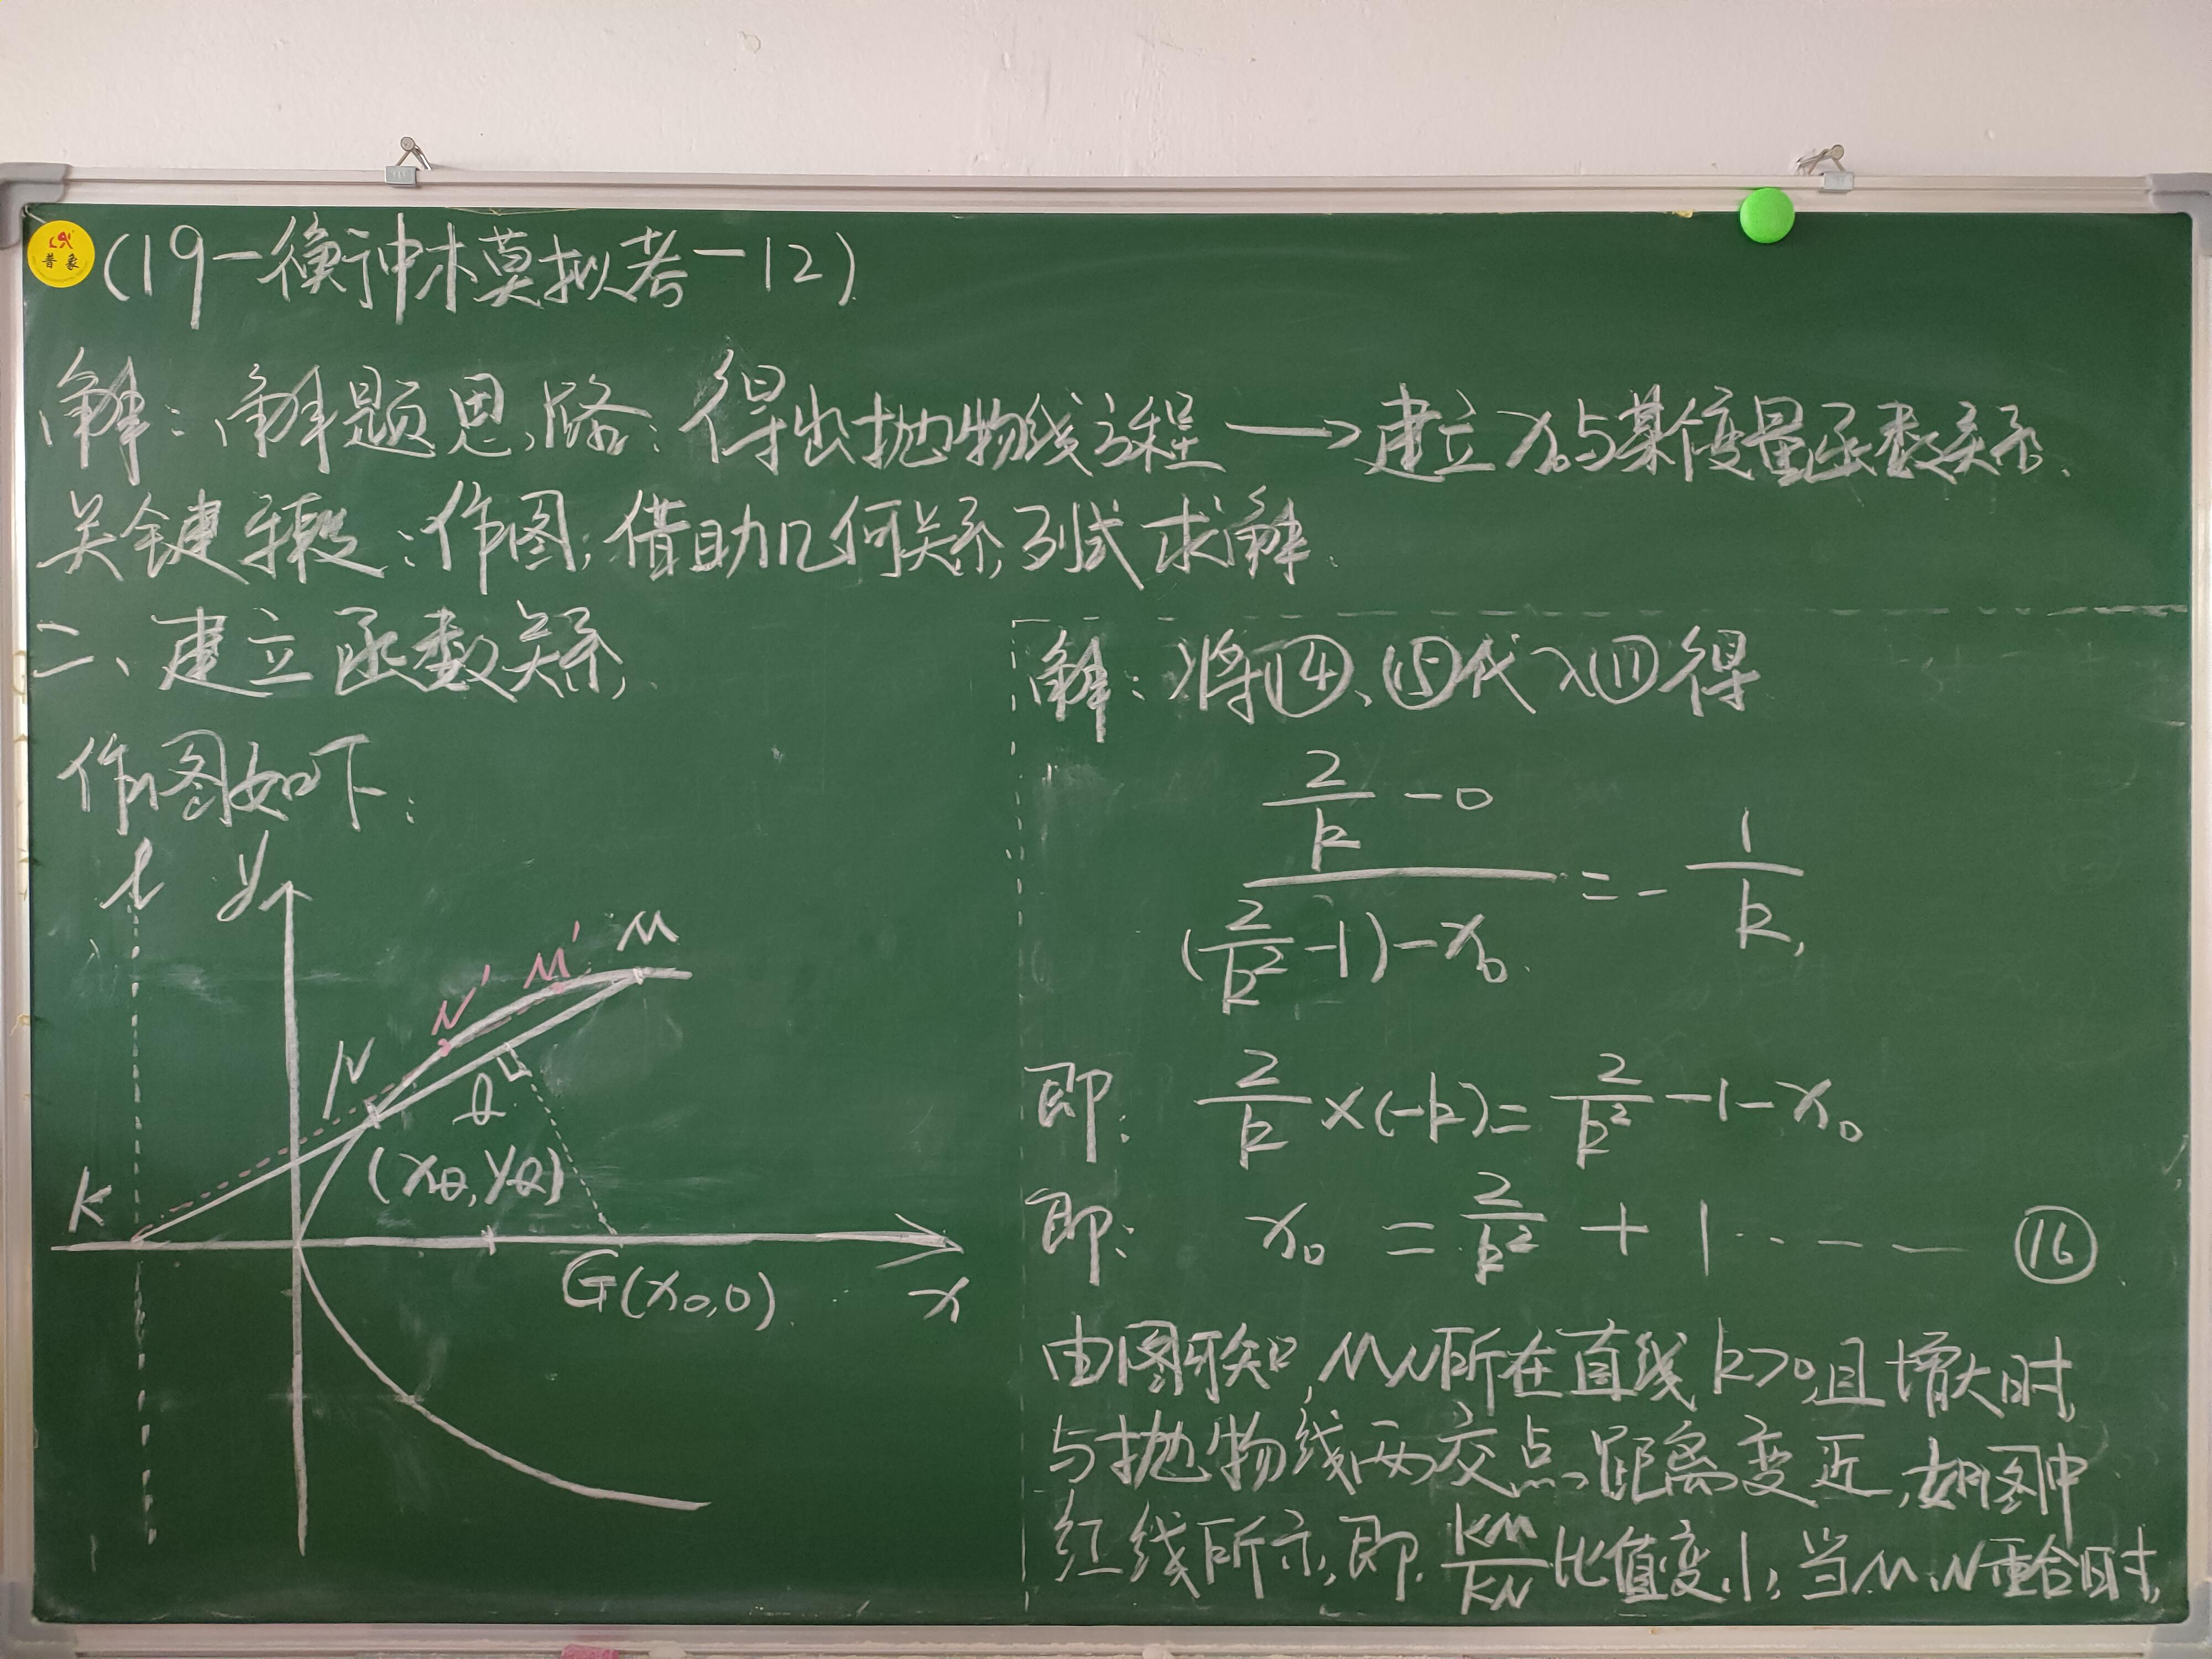 普象
(19-衡神模拟考-12)
解:解题思路:得出抛物线方程→建立x₀与某变量函数关系.
关键步骤:作图,借助几何关系列式求解.
二、建立函数关系.
作图如下:
l y
N' M' M
N
Q
(x_Q, y_Q)
K
G(x₀,0) x
解:将⑭、⑮代入⑪得
(2/k - 0)/((2/k² - 1) - x₀) = - 1/k,
即: 2/k ×(-k) = 2/k² - 1 - x₀
即: x₀ = 2/k² + 1 …… ⑯
由图可知,MN所在直线k>0且增大时,
与抛物线两交点距离变近,如图中
红线所示,即KM/KN比值变小,当M、N重合时,